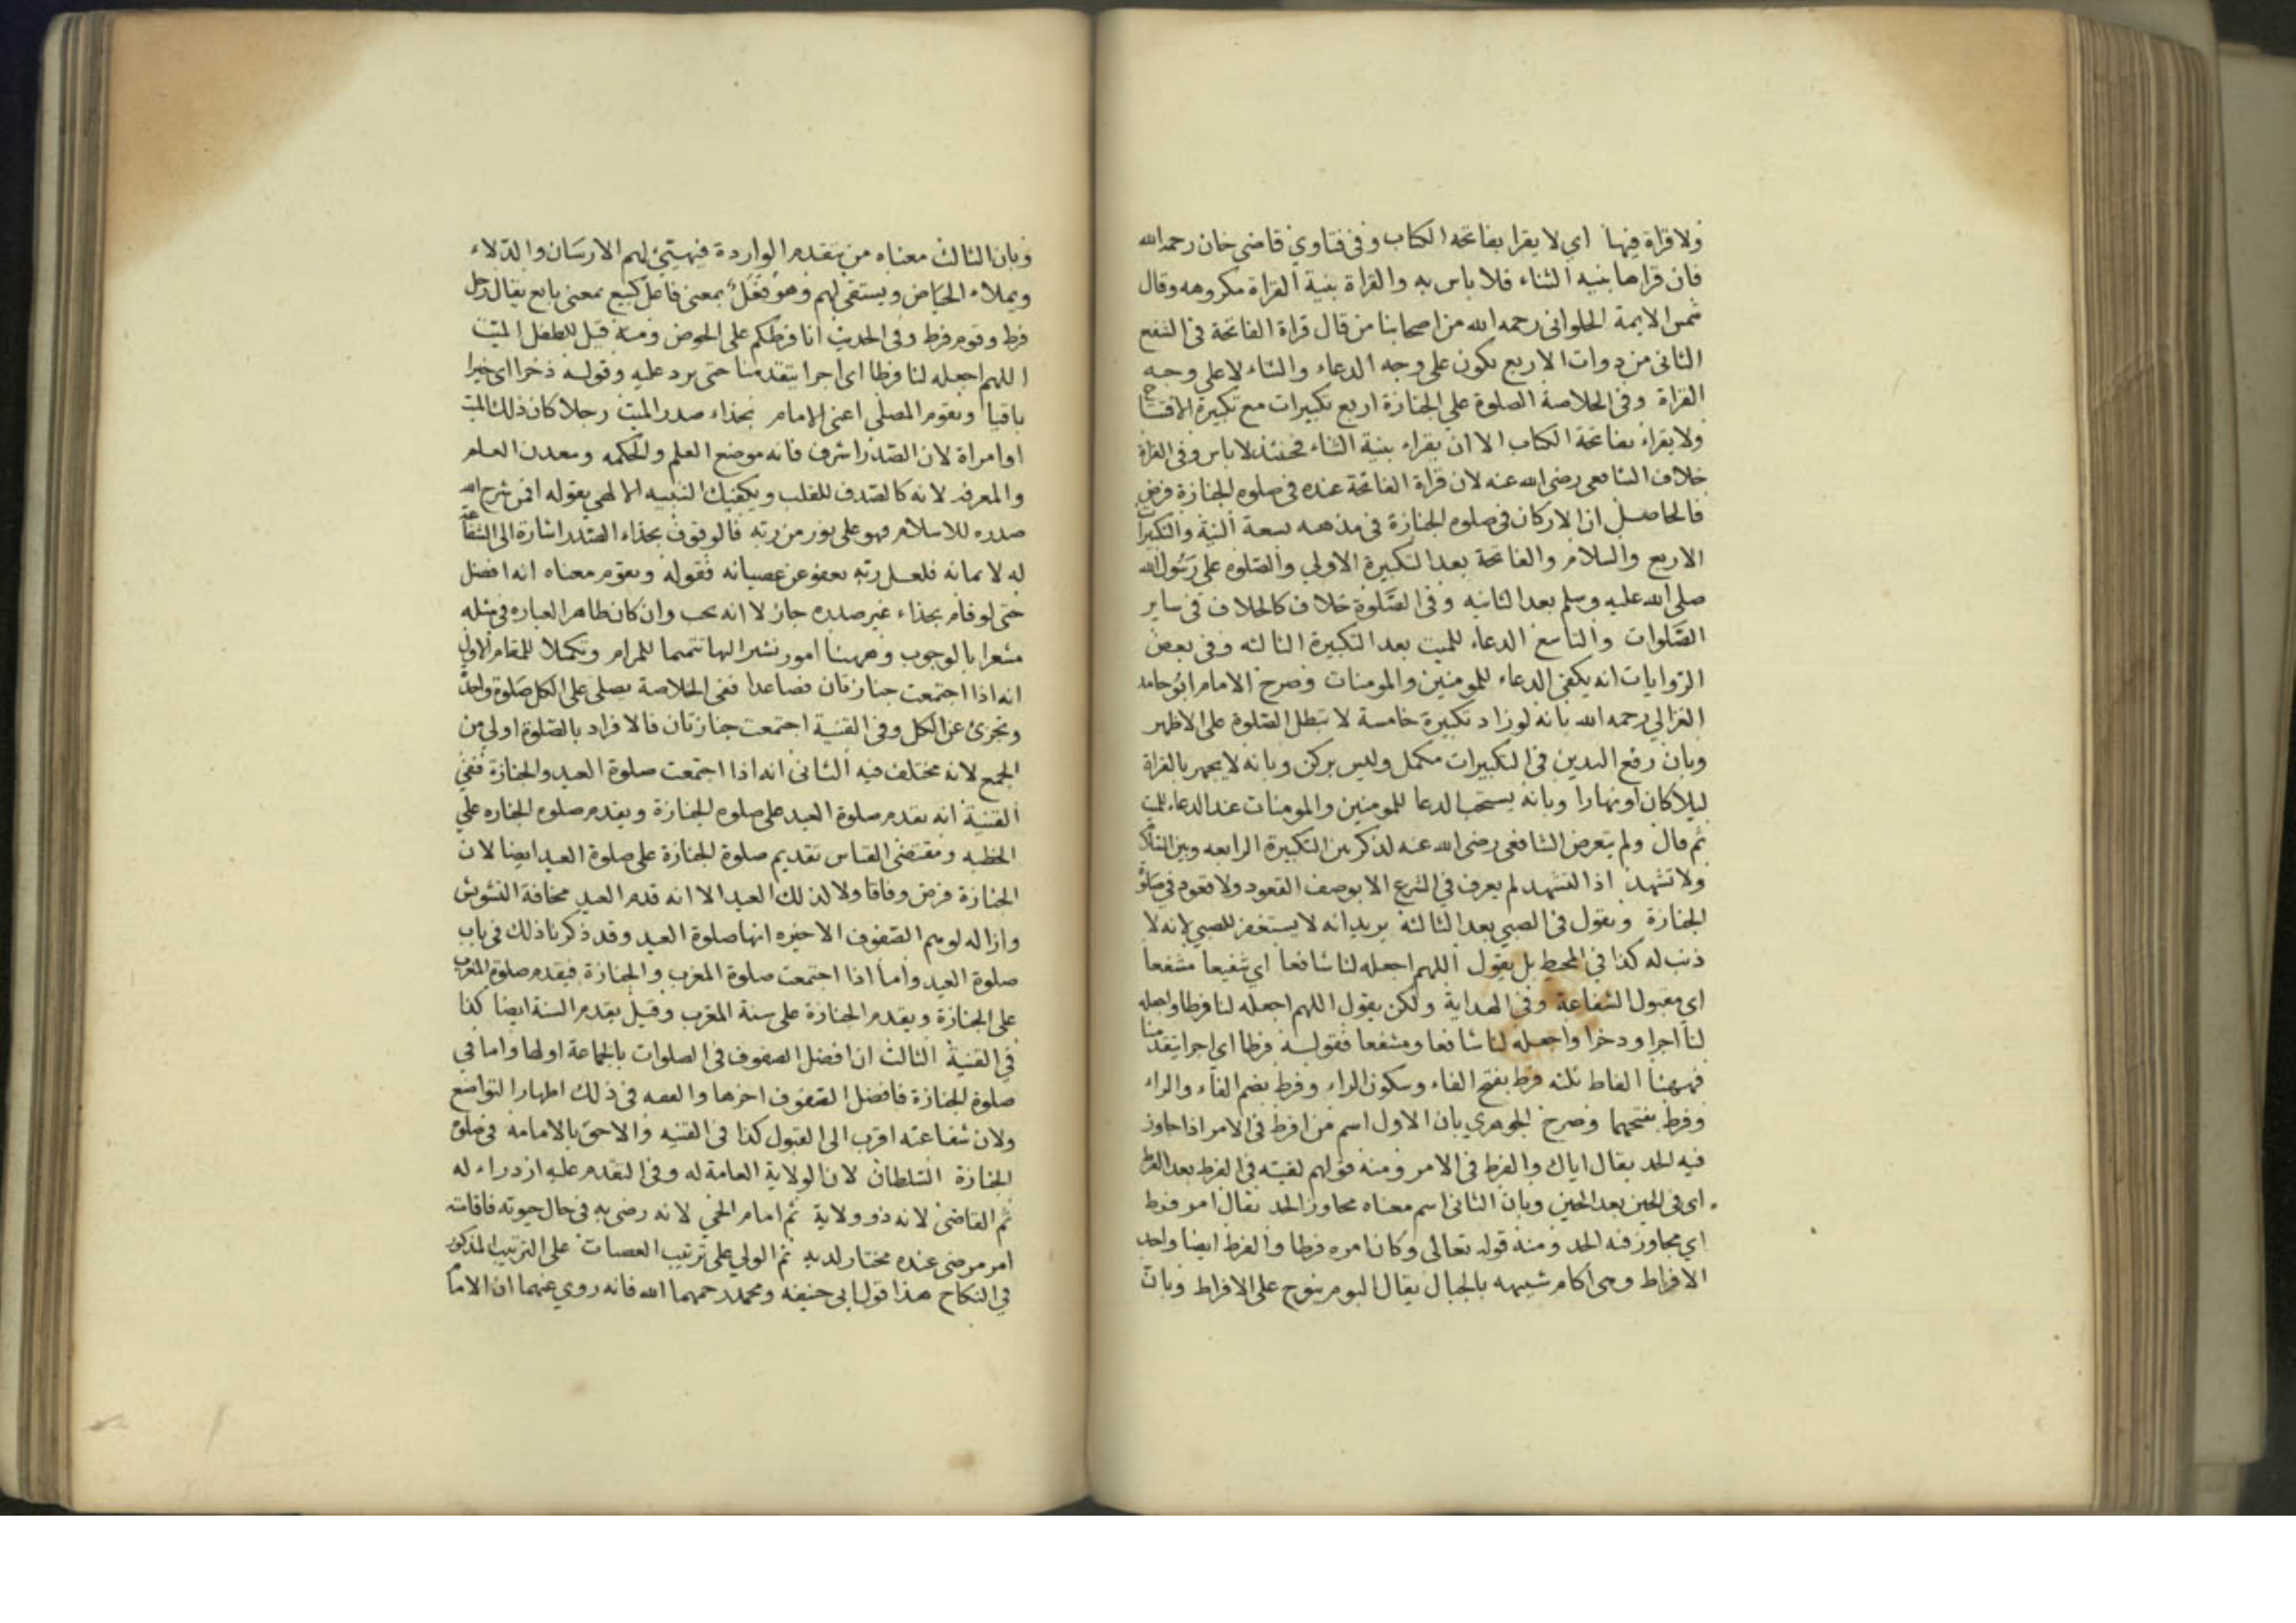 ولا قراة فيها اي لا يقرا بفاتحه الكتاب وفى فتاوي قاضي خان رحمه الله
فان قراها بنيه الثناء فلا باس به والقراة بنية القراة مكروهه وقال
شمس الايمة الحلوانى رحمه الله من اصحابنا من قال قراة الفاتحة فى الشفع
الثانى من ذوات الاربع يكون على وجه الدعاء والثناء لا على وجه
القراة وفى الخلاصة الصلوة على الجنازة اربع تكبيرات مع تكبيرة الافتتاح
ولا يقراء بفاتحة الكتاب الا ان يقراء بنية الثناء فحينئذ لا باس وفى القراة
خلاف الشافعى رضى الله عنه لان قراة الفاتحة عنده فى صلوه الجنازة فرض
فالحاصل ان الاركان فى صلوه الجنازة فى مذهبه تسعة النية والتكبيرات
الاربع والسلام والفاتحة بعد التكبيرة الاولي والصلوه علي رسول الله
صلى الله عليه وسلم بعد الثانيه وفى الصلوة خلاف كالخلاف فى ساير
الصلوات والتاسع الدعاء للميت بعد التكبيرة الثالثه وفى بعض
الروايات انه يكفى الدعاء للمومنين والمومنات وصرح الامام ابو حامد
الغزالي رحمه الله بانه لو زاد تكبيرة خامسة لا تبطل الصلوة على الاظهر
وبان رفع اليدين فى التكبيرات مكمل وليس بركن وبانه لا يجهر بالقراة
ليلا كان او نهارا وبانه يستحب الدعا للمومنين والمومنات عند الدعاء للميت
ثم قال ولم يتعرض الشافعى رضى الله عنه لذكر بين التكبيرة الرابعه وبين السلام
ولا تشهد اذ التشهد لم يعرف في الشرع الا بوصف القعود ولا قعود في صلوة
الجنازة ويقول فى الصبي بعد الثالثة يريد انه لا يستغفر للصبي لانه لا
ذنب له كذا في المحيط بل يقول اللهم اجعله لنا شافعا اي شفيعا مشفعا
اي مقبول الشفاعة وفى الهداية ولكن يقول اللهم اجعله لنا فرطا واجعله
لنا اجرا ودخرا واجعله لنا شافعا ومشفعا فقوله فرطا اي اجرا يتقدمنا
فههنا الفاظ ثلثه فرط بفتح الفاء وسكون الراء وفرط بضم الفاء والراء
وفرط بفتحهما وصرح الجوهري بان الاول اسم من افرط فى الامر اذا جاوز
فيه الحد يقال اياك والفرط فى الامر ومنه قولهم لقيته فى الفرط بعد الفرط
اى فى الحين بعد الحين وبان الثانى اسم معناه مجاوز الحد يقال امر فرط
اي مجاوز فيه الحد ومنه قوله تعالى وكان امره فرطا والفرط ايضا واحد
الافراط وهى اكام شبيهه بالجبال يقال البوم ينوح على الافراط وبان
وبان الثالث معناه من يتقدم الواردة فيهيئ لهم الارسان والدلاء
ويملاء الحياض ويستقى لهم وهو فَعَل بمعنى فاعل كتبع بمعنى بايع يقال رجل
فرط وقوم فرط وفى الحديث انا فرطكم على الحوض ومنه قيل للطفل الميت
اللهم اجعله لنا فرطا اى اجرا يتقدمنا حتى يرد عليه وقوله ذخرا اى خيرا
باقيا ويقوم المصلى اعنى الامام بحذاء صدر الميت رجلا كان ذلك الميت
او امراة لان الصدر اشرف فانه موضع العلم والحكمه ومعدن العلم
والمعرفه لانه كالصدف للقلب ويكفيك التنبيه الالهي بقوله افمن شرح الله
صدره للاسلام فهو على نور من ربه فالوقوف بحذاء الصدر اشارة الى الشفاعة
له لايمانه فلعل ربه يعفو عن عصيانه فقوله ويقوم معناه انه افضل
حتى لو قام بحذاء غير صدره جاز لا انه يجب وان كان ظاهر العباره فى مثله
مشعرا بالوجوب وههنا امور نشير اليها تتميما للمرام وتكملا للمقام الاول
انه اذا اجتمعت جنازتان فصاعدا ففى الخلاصة يصلى على الكل صلوة واحدة
وتجزئ عن الكل وفى القنية اجتمعت جنازتان فالافراد بالصلوة اولى من
الجمع لانه مختلف فيه الثانى انه اذا اجتمعت صلوة العيد والجنازة ففي
القنية انه يقدم صلوة العيد على صلوه الجنازة ويقدم صلوه الجنازه على
الخطبه ومقتضى القياس تقديم صلوة الجنازة على صلوة العيد ايضا لان
الجنازة فرض وفاقا ولا كذلك العيد الا انه قدم العيد مخافة التشويش
وازاله لوهم الصفوف الاخيره انها صلوة العيد وقد ذكرنا ذلك فى باب
صلوة العيد واما اذا اجتمعت صلوة المغرب والجنازة فيقدم صلوة المغرب
على الجنازة ويقدم الجنازة على سنة المغرب وقيل يقدم السنة ايضا كذا
في القنية الثالث ان افضل الصفوف فى الصلوات بالجماعة اولها واما في
صلوة الجنازة فافضل الصفوف اخرها والفقه فى ذلك اظهار التواضع
ولان شفاعته اقرب الى القبول كذا فى القنيه والاحق بالامامة فى صلوة
الجنازة السلطان لان الولاية العامة له وفى التقدم عليه ازدراء له
ثم القاضى لانه ذو ولاية ثم امام الحي لانه رضى به فى حال حيوته فاقامته
امر مرضى عنده مختار لديه ثم الولي على ترتيب العصبات على الترتيب المذكور
في النكاح هذا قول ابي حنيفه ومحمد رحمهما الله فانه روي عنهما ان الامام